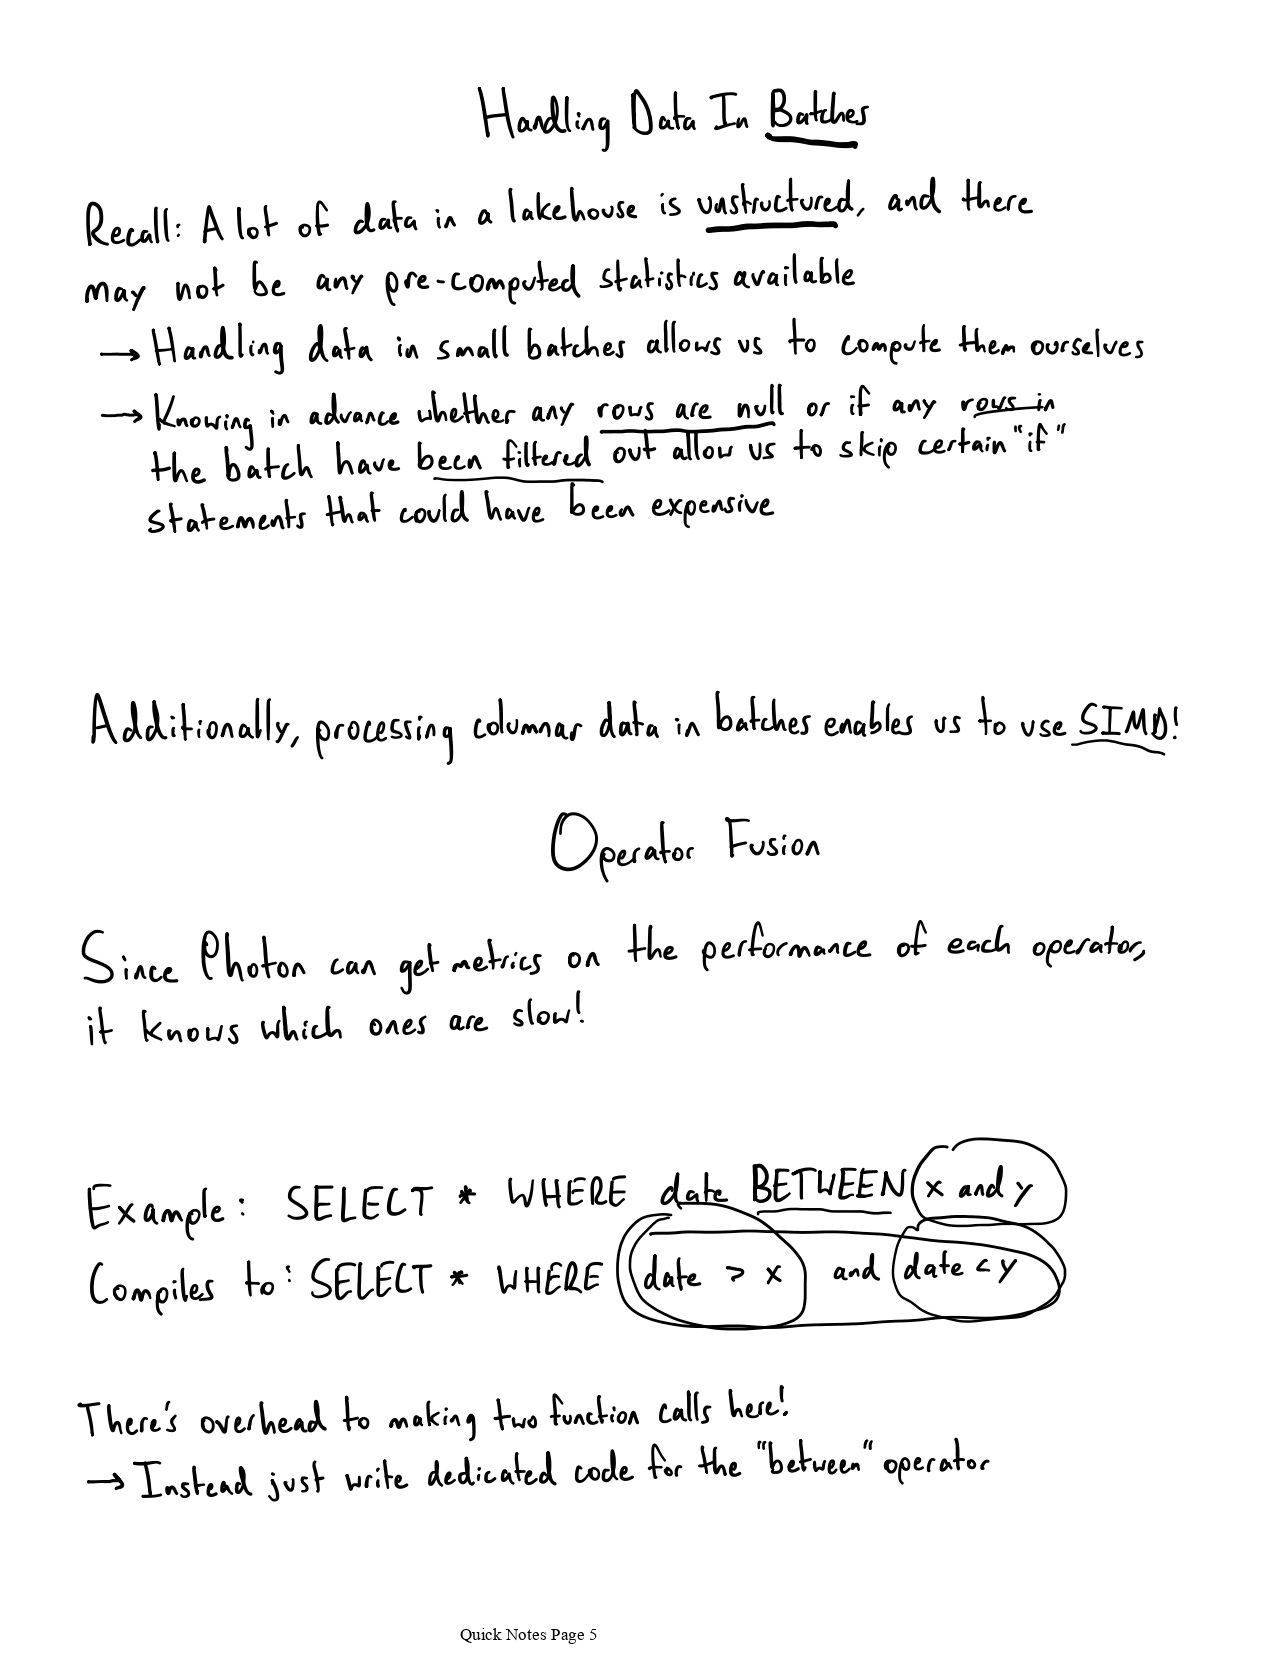 Handling Data In Batches
Recall: A lot of data in a lakehouse is unstructured, and there
may not be any pre-computed statistics available
→ Handling data in small batches allows us to compute them ourselves
→ Knowing in advance whether any rows are null or if any rows in
the batch have been filtered out allow us to skip certain "if"
statements that could have been expensive
Additionally, processing columnar data in batches enables us to use SIMD!
Operator Fusion
Since Photon can get metrics on the performance of each operator,
it knows which ones are slow!
Example: SELECT * WHERE date BETWEEN x and y
Compiles to: SELECT * WHERE date > x and date < y
There's overhead to making two function calls here!
→ Instead just write dedicated code for the "between" operator
Quick Notes Page 5